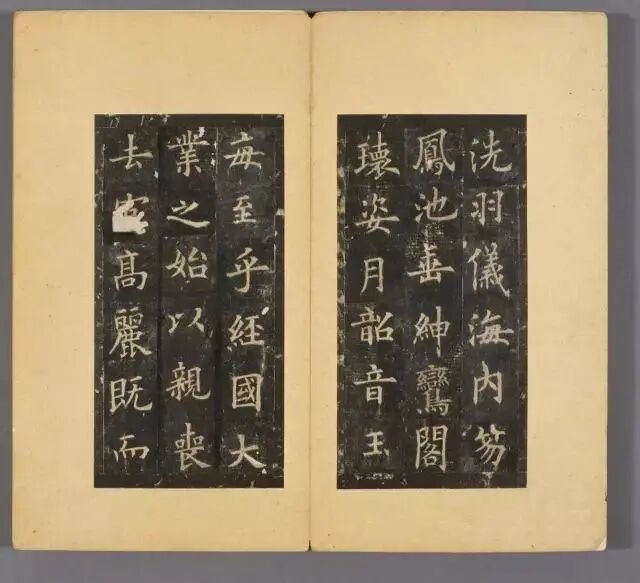 洗羽儀海內笏
鳳池垂紳鸞閣
瓌姿月韶音玉
每至乎經國大
業之始以親喪
去高麗既而